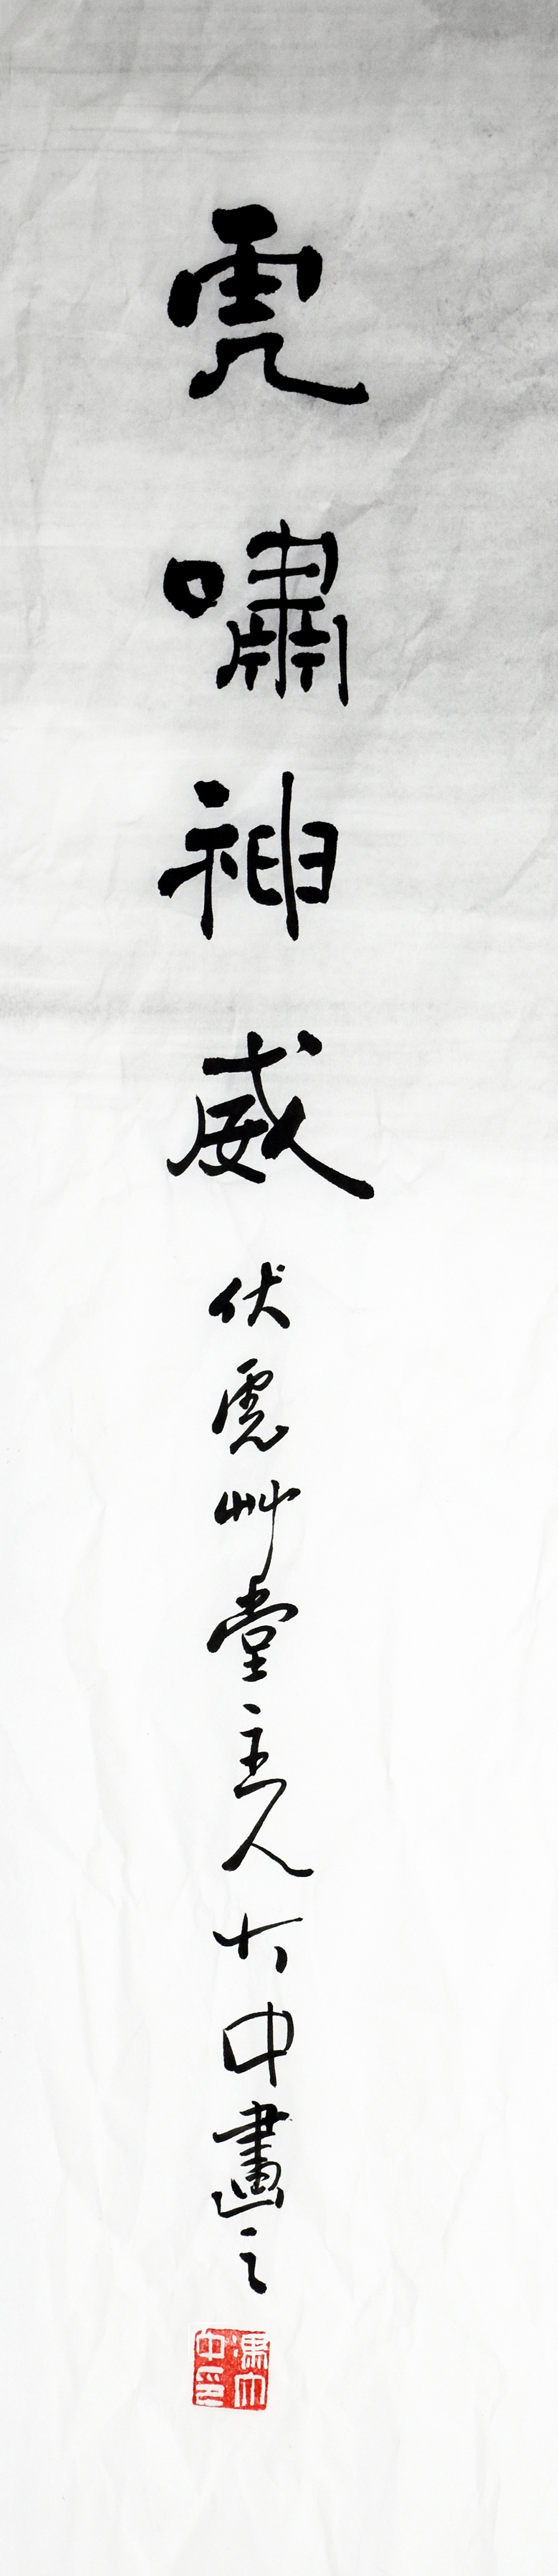 虎嘯神威
伏虎艸堂主人大中畫之
馮大中印